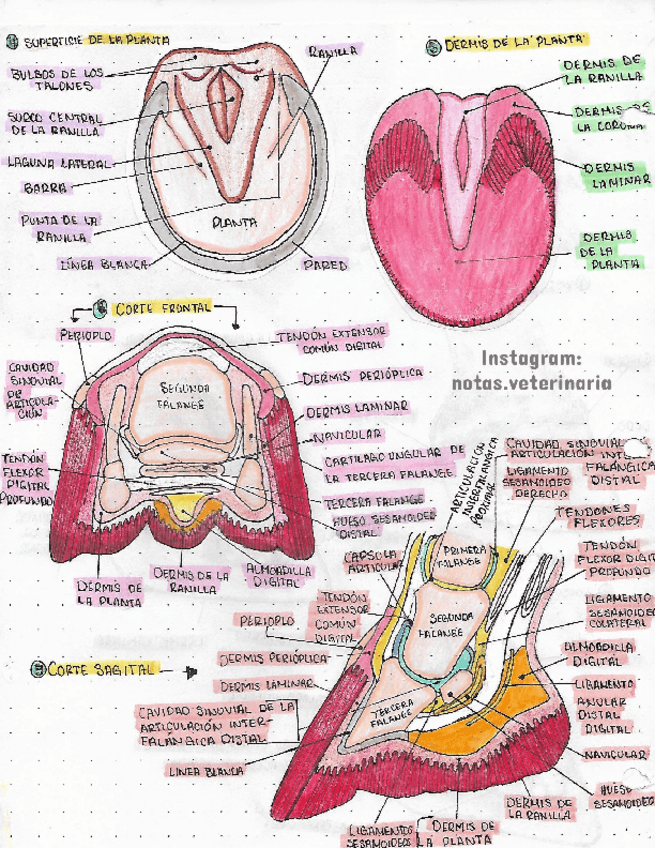 SUPERFICIE DE LA PLANTA
BULBOS DE LOS
TALONES
SURCO CENTRAL
DE LA RANILLA
LAGUNA LATERAL
BARRA
PUNTA DE LA
RANILLA
LÍNEA BLANCA
RANILLA
PLANTA
PARED
DERMIS DE LA PLANTA
DERMIS DE
LA RANILLA
DERMIS DE
LA CORONA
DERMIS
LAMINAR
DERMIS
DE LA
PLANTA
CORTE FRONTAL
PERIOPLO
CAVIDAD
SINOVIAL
DE
ARTICULA-
CIÓN
TENDÓN
FLEXOR
DIGITAL
PROFUNDO
DERMIS DE
LA PLANTA
DERMIS DE LA
RANILLA
ALMOADILLA
DIGITAL
SEGUNDA
FALANGE
TENDÓN EXTENSOR
COMÚN DIGITAL
DERMIS PERIÓPLICA
DERMIS LAMINAR
NAVICULAR
CARTILAGO UNGULAR DE
LA TERCERA FALANGE
TERCERA FALANGE
HUESO SESAMOIDEO
DISTAL
Instagram:
notas.veterinaria
CORTE SAGITAL
CAPSULA
ARTICULAR
TENDÓN
EXTENSOR
COMÚN
DIGITAL
PERIOPLO
DERMIS PERIÓPLICA
DERMIS LAMINAR
CAVIDAD SINOVIAL DE LA
ARTICULACIÓN INTER-
FALANGICA DISTAL
LINEA BLANCA
PRIMERA
FALANGE
SEGUNDA
FALANGE
TERCERA
FALANGE
ARTICULACION
INTERFALANGICA
CAVIDAD SINOVIAL
ARTICULACIÓN
FALÁNGICA
DISTAL
LIGAMENTO
SESAMOIDEO
DERECHO
TENDONES
FLEXORES
TENDÓN
FLEXOR DIGITAL
PROFUNDO
LIGAMENTO
SESAMOIDEO
COLATERAL
ALMOADILLA
DIGITAL
LIGAMENTO
ANULAR
DISTAL
DIGITAL
NAVICULAR
HUESO
SESAMOIDEO
DERMIS DE
LA RANILLA
LIGAMENTOS
SESAMOIDEOS
DERMIS DE
LA PLANTA